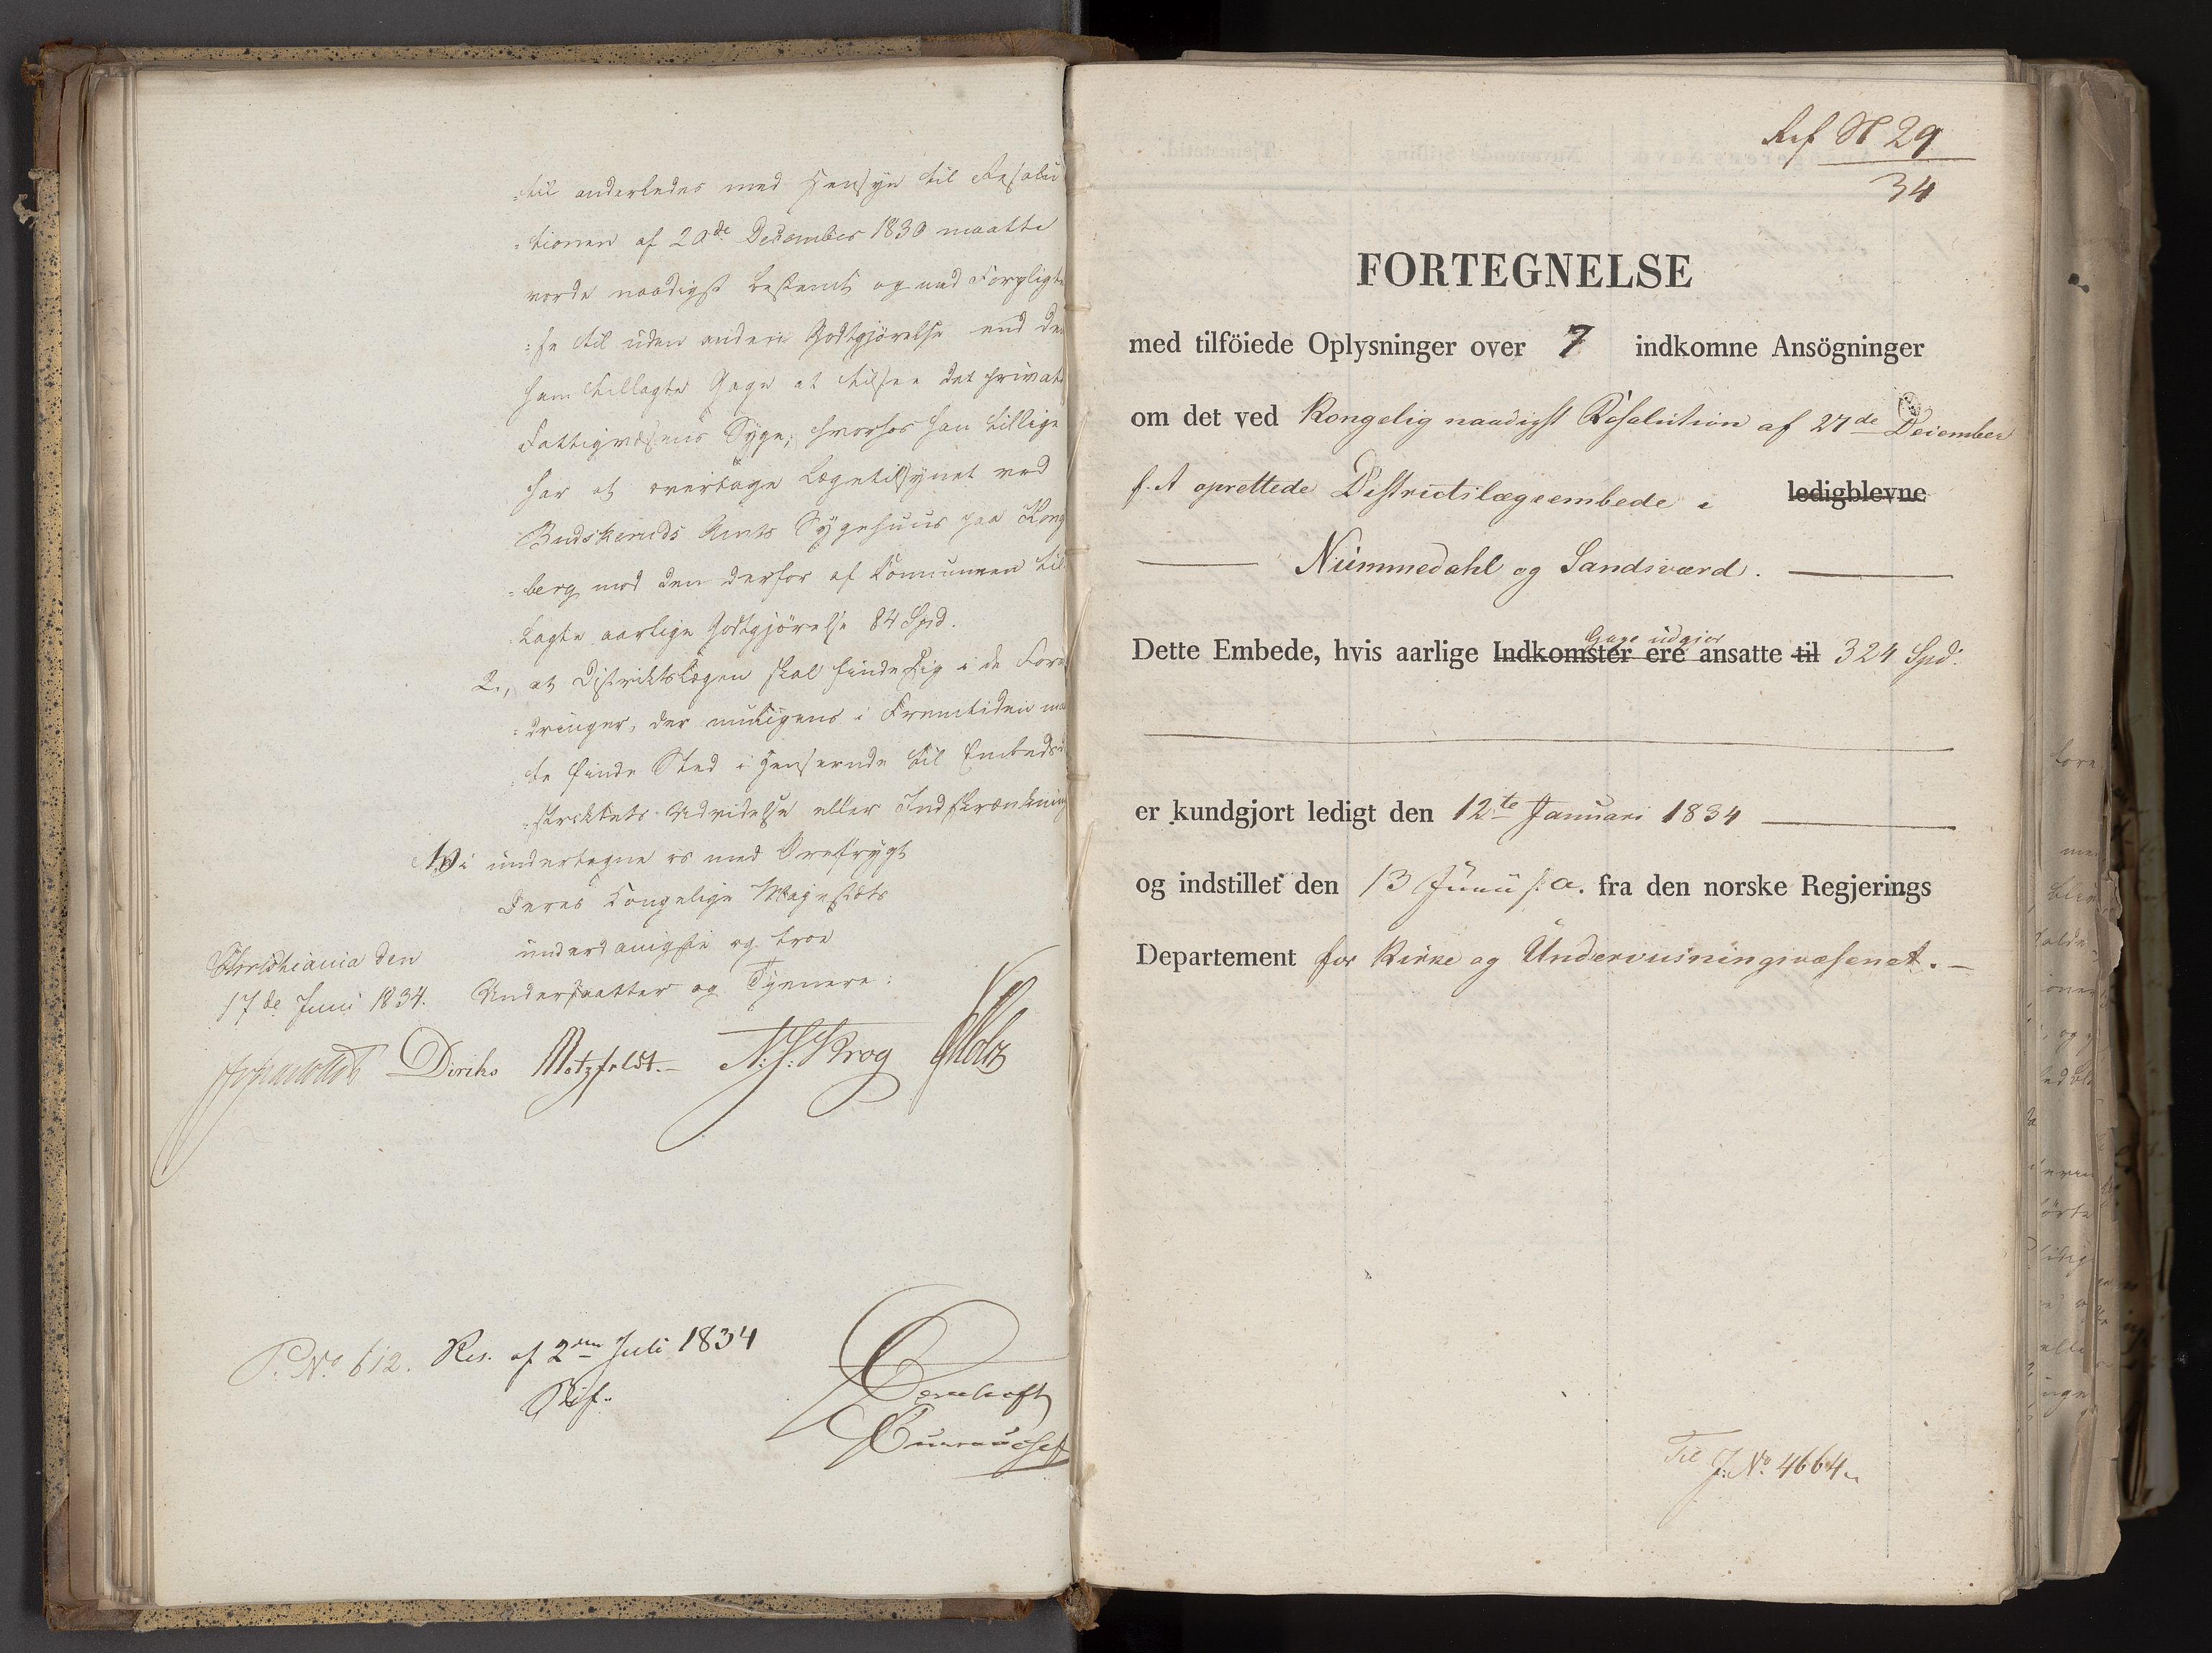 :til anderledes med Hensyn til Resolu
:tionen af 20de December 1830 maatte
vorde naadigst bestemt og med Forpligte
:se til uden anden Godtgjörelse end den
ham tillagte Gage at tilsee det private
Fattigvæsens Syge, hvorhos han tillige
har at overtage Lægetilsynet ved
Budskeruds Amts Sygehuus paa Kong
:berg mod den derfor af Communen til
:lagte aarlige Godtgjörelse 84 Spd.
2., at Distriktslægen skal finde sig i de Foran
:dringer, der muligens i Fremtiden maa
:te finde Sted i Henseende til Embedsdi
:striktets Udvidelse eller Indskrænkning
Vi undertegne os med Ærefrygt
Deres Kongelige Majestæts
underdanigste og troe
Christiania den
17de Juni 1834. Undersaatter og Tjenere:
Diriks Motzfeldt.- N.J. Krog Holst
P. No. 612. Res. af 2den Juli 1834
Bureauchef
Ref No 29
34
FORTEGNELSE
med tilföiede Oplysninger over 7 indkomne Ansögninger
om det ved Kongelig naadigst Resolution af 27de December
f. A oprettede Districtslægeembede i ledigblevne
Nummedahl og Sandsværd.
Gage udgjør
Dette Embede, hvis aarlige Indkomster ere ansatte til 324 Spd.
er kundgjort ledigt den 12te Januari 1834
og indstillet den 13 Junii s. a. fra den norske Regjerings
Departement for Kirke og Underviisningsvæsenet.-
Til J. No. 4664